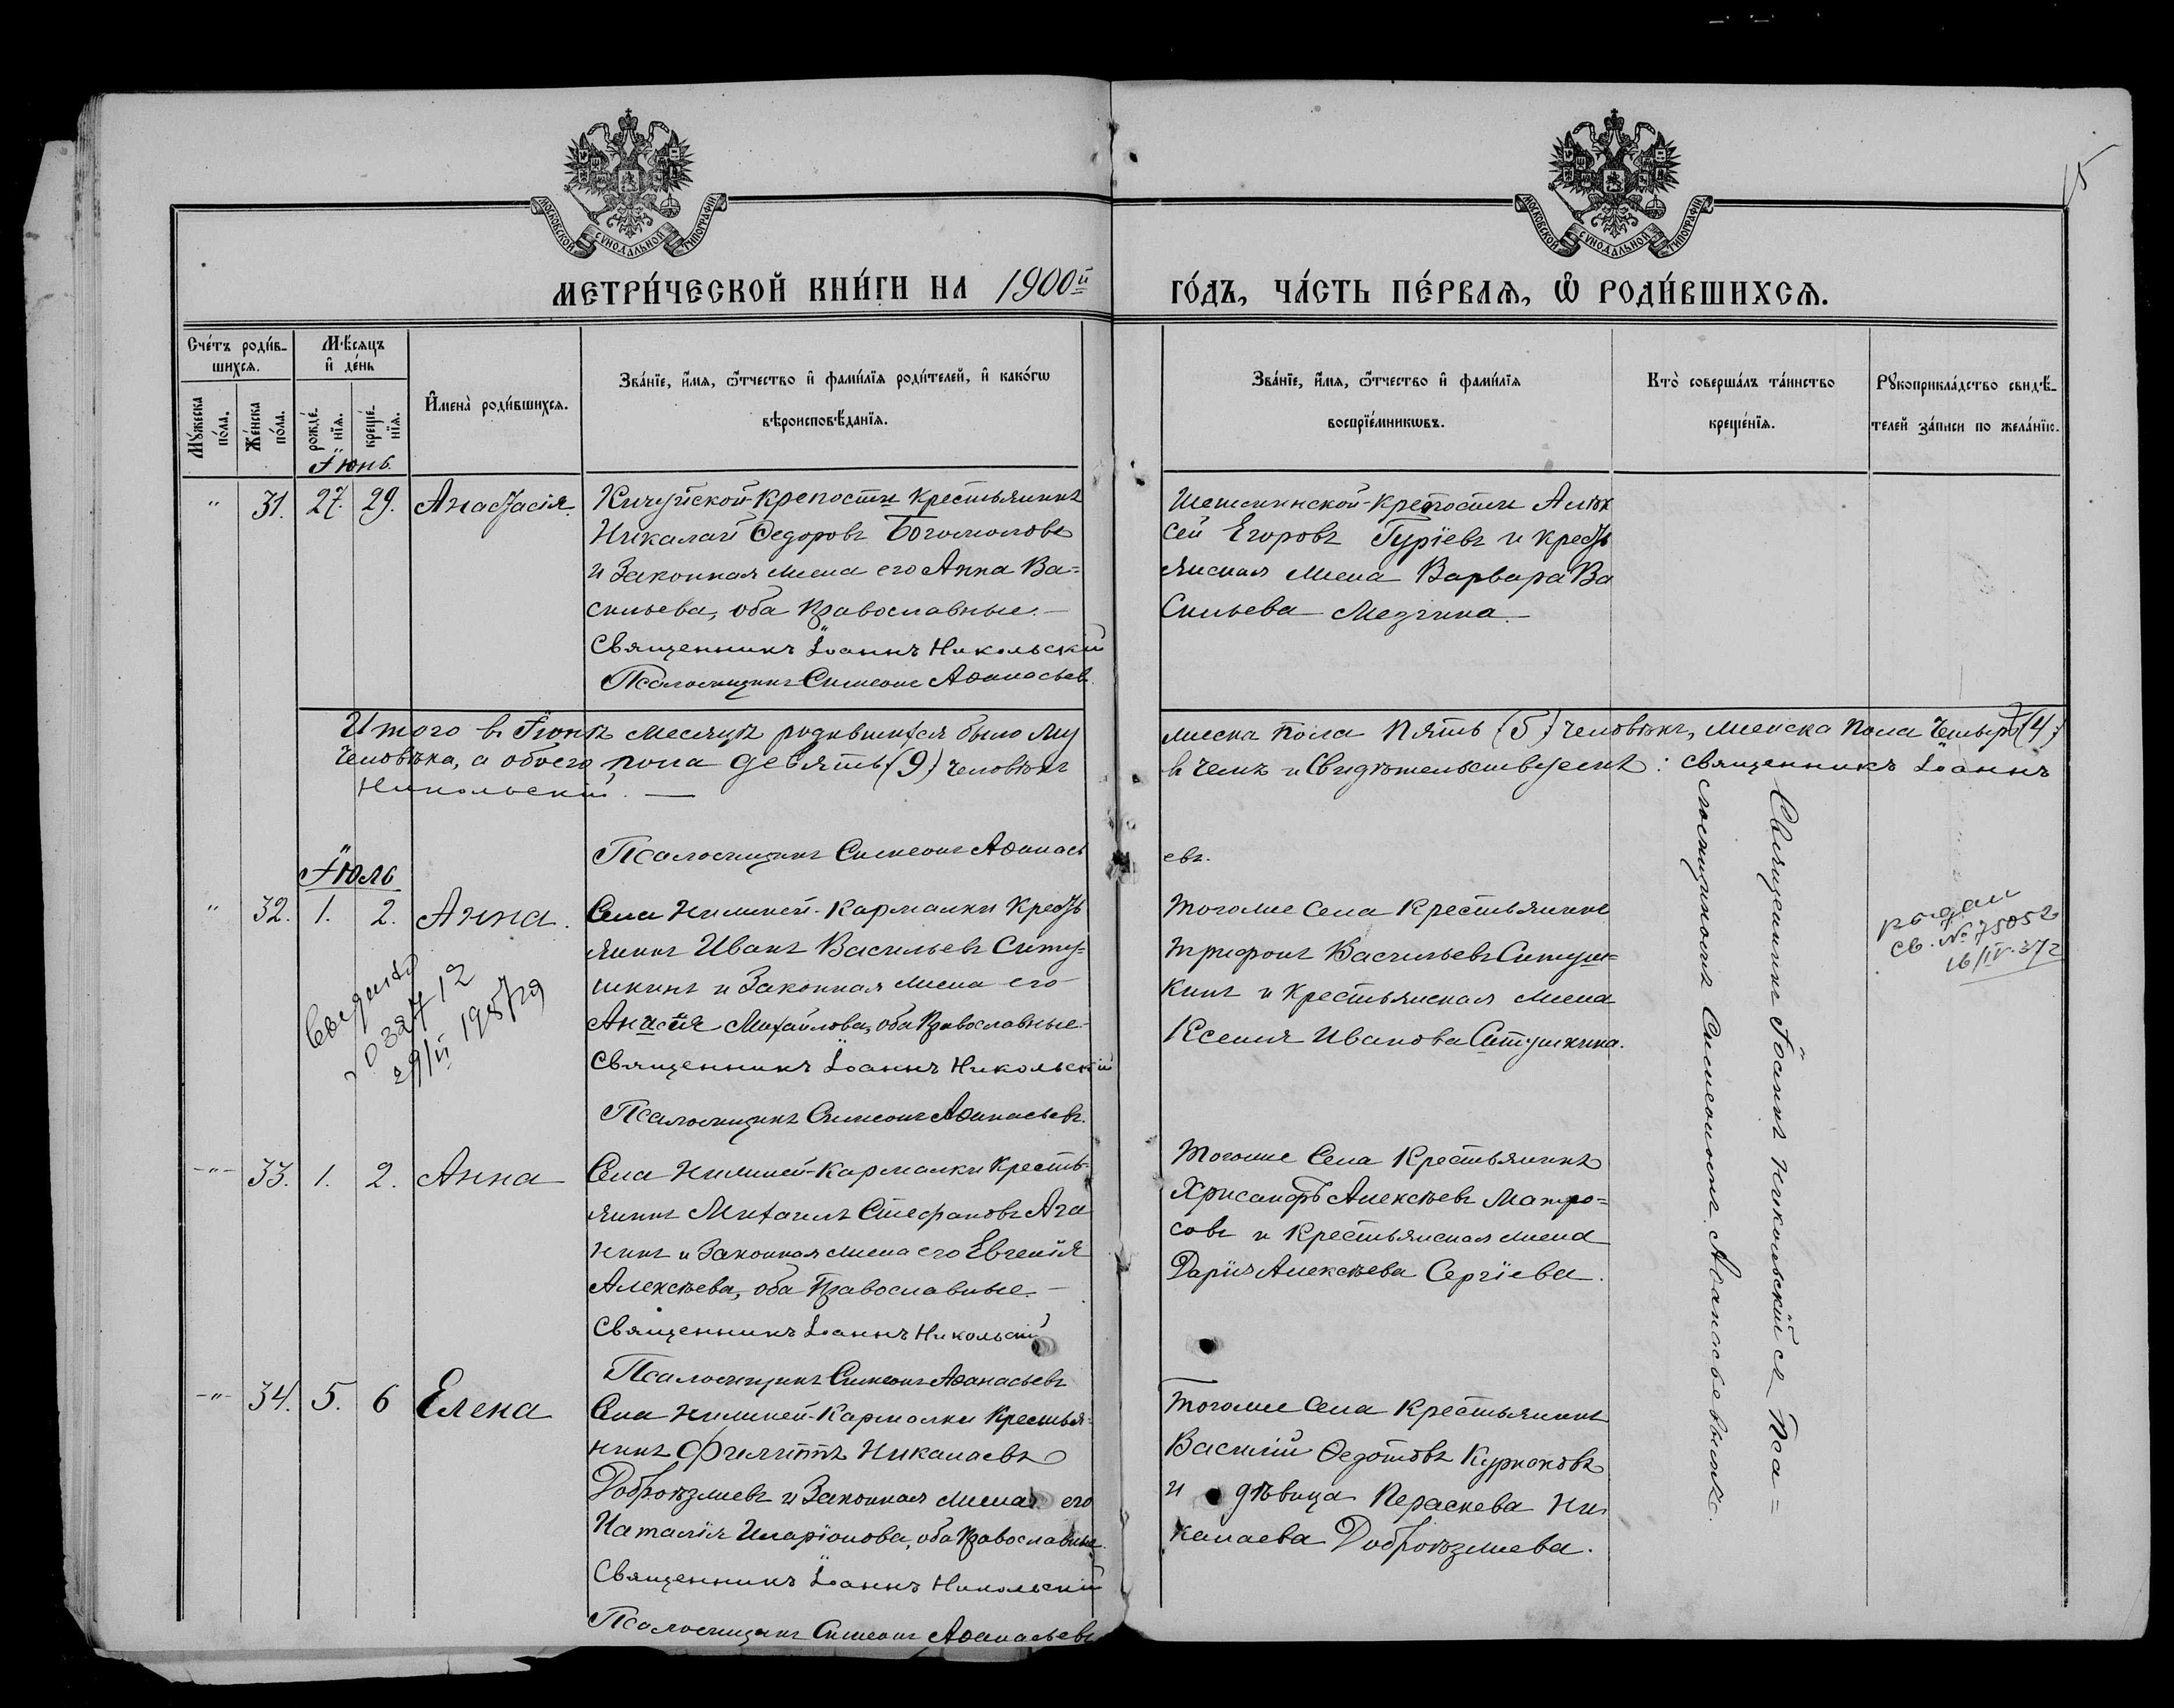 15
МОСКОВСКОЙ СѴНОДАЛЬНОЙ ТИПОГРАФІИ
МОСКОВСКОЙ СѴНОДАЛЬНОЙ ТИПОГРАФІИ
МЕТРИ́ЧЕСКОЙ КНИ́ГИ НА 1900й ГО́ДЪ, ЧА́СТЬ ПЕ́РВАѦ, Ѿ РОДИ́ВШИХСѦ.
Сче́тъ роди́в-
шихсѧ.
Мꙋ́жеска по́ла.
Же́нска по́ла.
Мѣ́сѧцъ и҆ де́нь
рожде́-нїѧ.
креще́-нїѧ.
И҆мена̀ роди́вшихсѧ.
Зва́нїе, и҆́мѧ, ѻ҆́тчество и҆ фами́лїѧ роди́телей, и҆ како́гѡ
вѣроисповѣ́данїѧ.
Зва́нїе, и҆́мѧ, ѻ҆́тчество и҆ фами́лїѧ
воспрїе́мникѡвъ.
Кто̀ соверша́лъ та́инство
креще́нїѧ.
Рꙋкоприкла́дство свидѣ́-
телей за́писи по жела́нїю.
Іюнь.
" 31. 27. 29. Анастасія.
Кичуйской-Крепости крестьянинъ
Никалай Ѳедоровъ Богомоловъ
и Законная жена его Анна Ва=
сильева, оба Православные.—
Священникъ Іоаннъ Никольскій
Псаломщикъ Симеонъ Аѳанасьев
Шешминской-Крепости Алек
сей Егоровъ Гуріевъ и Кресть
янская жена Варвара Ва
сильева Мезгина.—
Итого въ Іюнѣ месяцѣ родившихся было му
жеска пола пять (5) человѣкъ, женска пола Четыре (4)
человѣка, а обоего пола девять (9) человѣкъ
въ чемъ и Свидѣтельствуемъ: Священникъ Іоаннъ
Никольскій.—
Псаломщикъ Симеонъ Аѳанась
евъ.
Іюль
" 32. 1. 2. Анна.
Села Нижней-Кармалки Кресть
янинъ Иванъ Васильевъ Ситу=
шкинъ и Законная жена его
Анастія Михайлова, оба Православные.
Священникъ Іоаннъ Никольскій
Псаломщикъ Симеонъ Аѳанасьевъ.
Тогоже Села Крестьянинъ
Трифонъ Васильевъ Ситуш=
кинъ и Крестьянская жена
Ксения Иванова Ситушкина.
выдан
св. № 75052
16/IV-37 г
-"- 33. 1. 2. Анна
Села Нижней-Кармалки Кресть-
янинъ Михаилъ Стефановъ Ага
нинъ и Законная жена его Евгенія
Алексѣева, оба Православные.—
Священникъ Іоаннъ Никольскій
Псаломщикъ Симеонъ Аѳанасьевъ
Тогоже Села Крестьянинъ
Хрисанфъ Алексѣевъ Матро=
совъ и Крестьянская жена
Дарія Алексѣева Сергіева.
-"- 34. 5. 6 Елена
Села Нижней-Кармалки Крестья-
нинъ Филиппъ Никалаевъ
Доброѣзжевъ и Законная жена его
Наталія Иларіонова, оба Православные.
Священникъ Іоаннъ Никольскій
Псаломщикъ Симеонъ Аѳанасьевъ
Тогоже Села Крестьянинъ
Василій Ѳедотовъ Курноковъ
и дѣвица Параскева Ни
калаева Доброѣзжева.
Священникъ Іоаннъ Никольскій съ Пса=
ломщикомъ Симеономъ Аѳанасьевымъ.